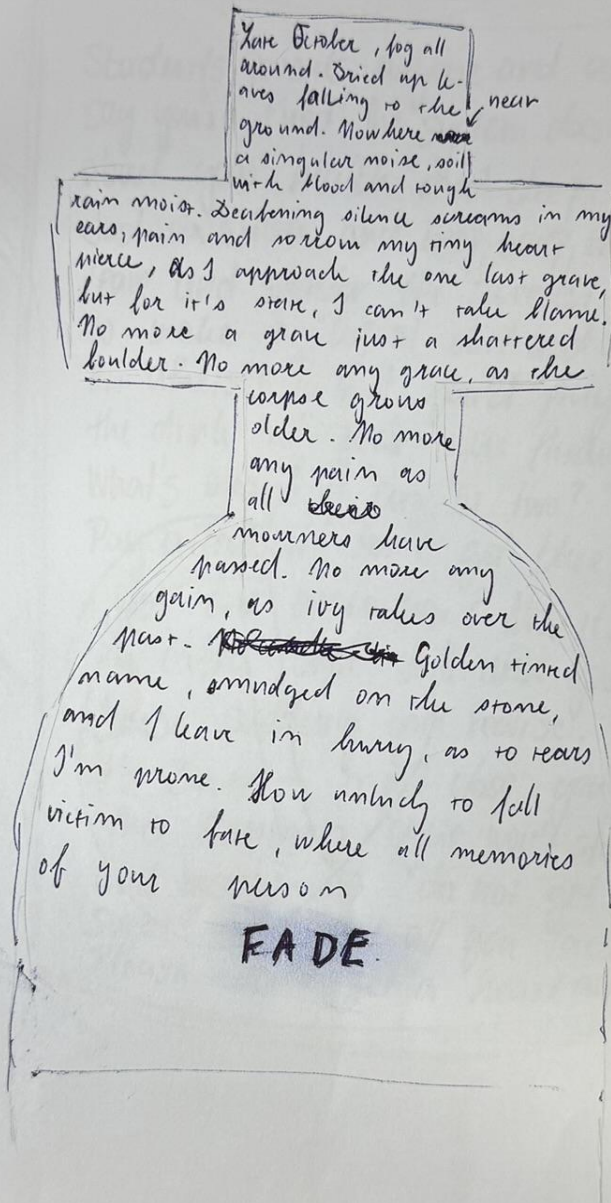 Late October, fog all
around. Dried up le-
aves falling to the
ground. Nowhere near
a singular noise, soil
with blood and rough
rain moist. Deafening silence screams in my
ears, pain and sorrow my tiny heart
pierce, as I approach the one last grave,
but for it's state, I can't take blame.
No more a grave just a shattered
boulder. No more any grace, as the
corpse grows
older. No more
any pain as
all
mourners have
passed. No more any
gain, as ivy takes over the
past. Golden tinted
name, smudged on the stone,
and I leave in hurry, as to tears
I'm prone. How unlucky to fall
victim to fate, where all memories
of your person
FADE.